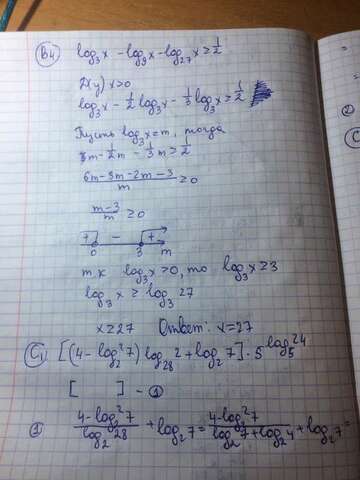 B4 log₃x - log₉x - log₂₇x ≥ 1/2
х>0
log₃x - 1/2 log₃x - 1/3 log₃x ≥ 1/2
Пусть log₃x = m, тогда
m - 1/2 m - 1/3 m ≥ 1/2
(6m-3m-2m-3)/m ≥ 0
(m-3)/m ≥ 0
+ - +
0 3 m
т.к log₃x > 0, то log₃x ≥ 3
log₃x ≥ log₃27
x ≥ 27 Ответ: x=27
C1 [(4 - log₂²7) log₂₈2 + log₂7] · 5^log₅24
[ ] - ①
① (4 - log₂²7)/(log₂28) + log₂7 = (4 - log₂²7)/(log₂7 + log₂4) + log₂7 =